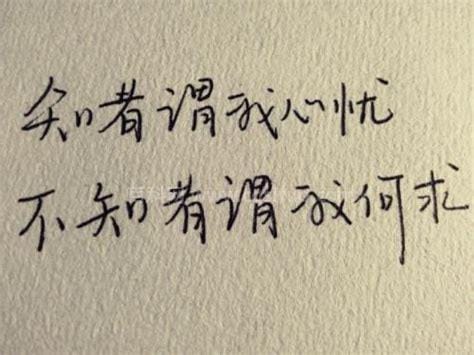 知者谓我心忧
不知者谓我何求